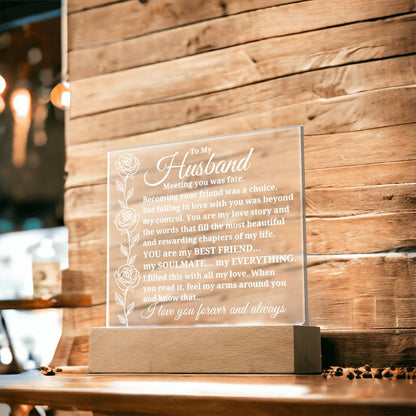 To My
Husband
Meeting you was fate.
Becoming your friend was a choice,
but falling in love with you was beyond
my control. You are my love story and
the words that fill the most beautiful
and rewarding chapters of my life.
YOU are my BEST FRIEND...
my SOULMATE... my EVERYTHING.
I filled this with all my love. When
you read it, feel my arms around you
and know that...
I love you forever and always